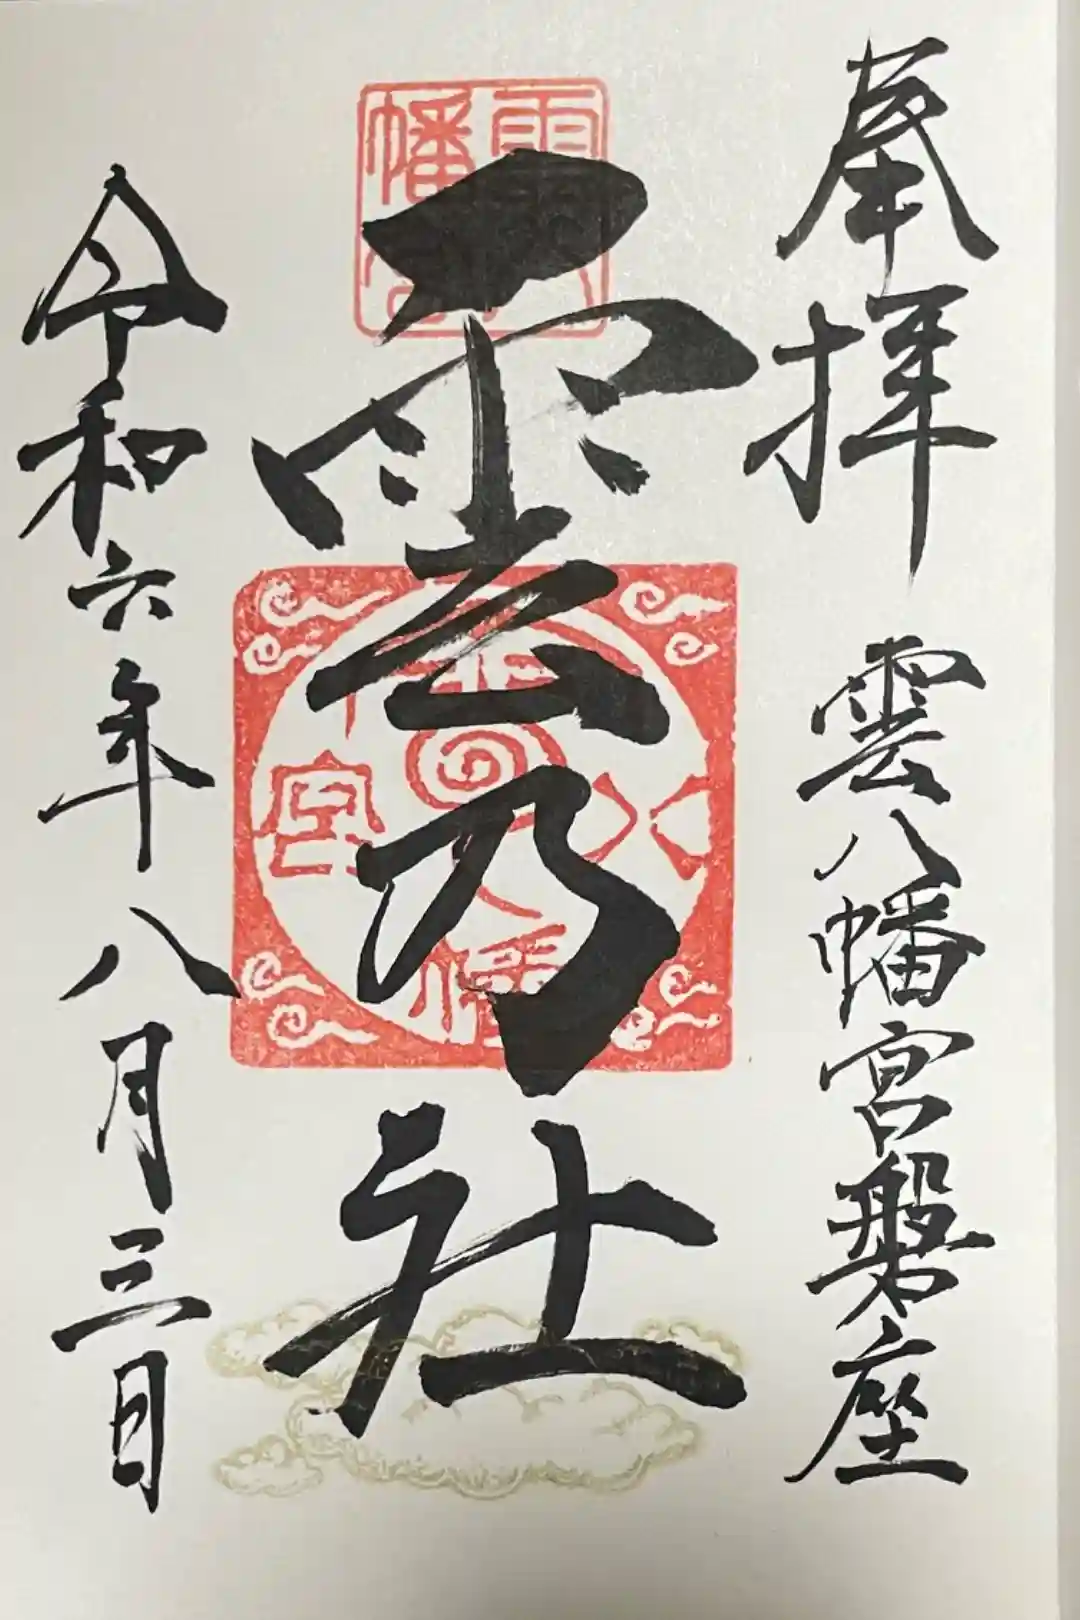 奉拝
雲八幡宮磐座
雲乃社
令和六年八月三日
雲八幡宮
雲八幡宮